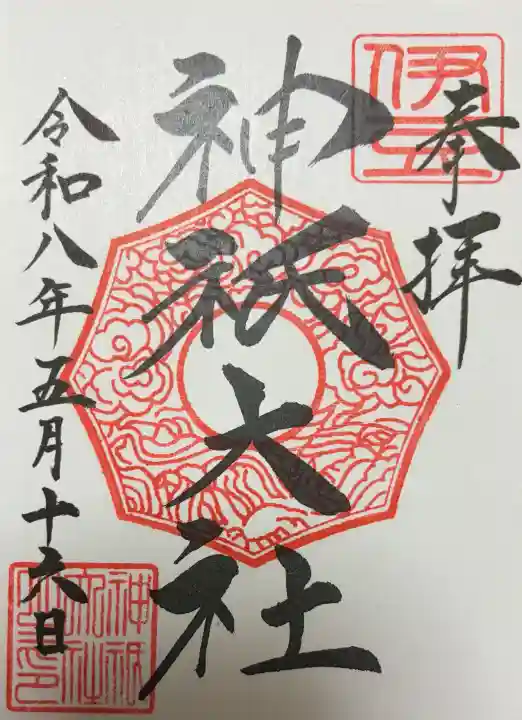 奉拝
伊豆
神祇大社
令和八年五月十六日
神祇大社